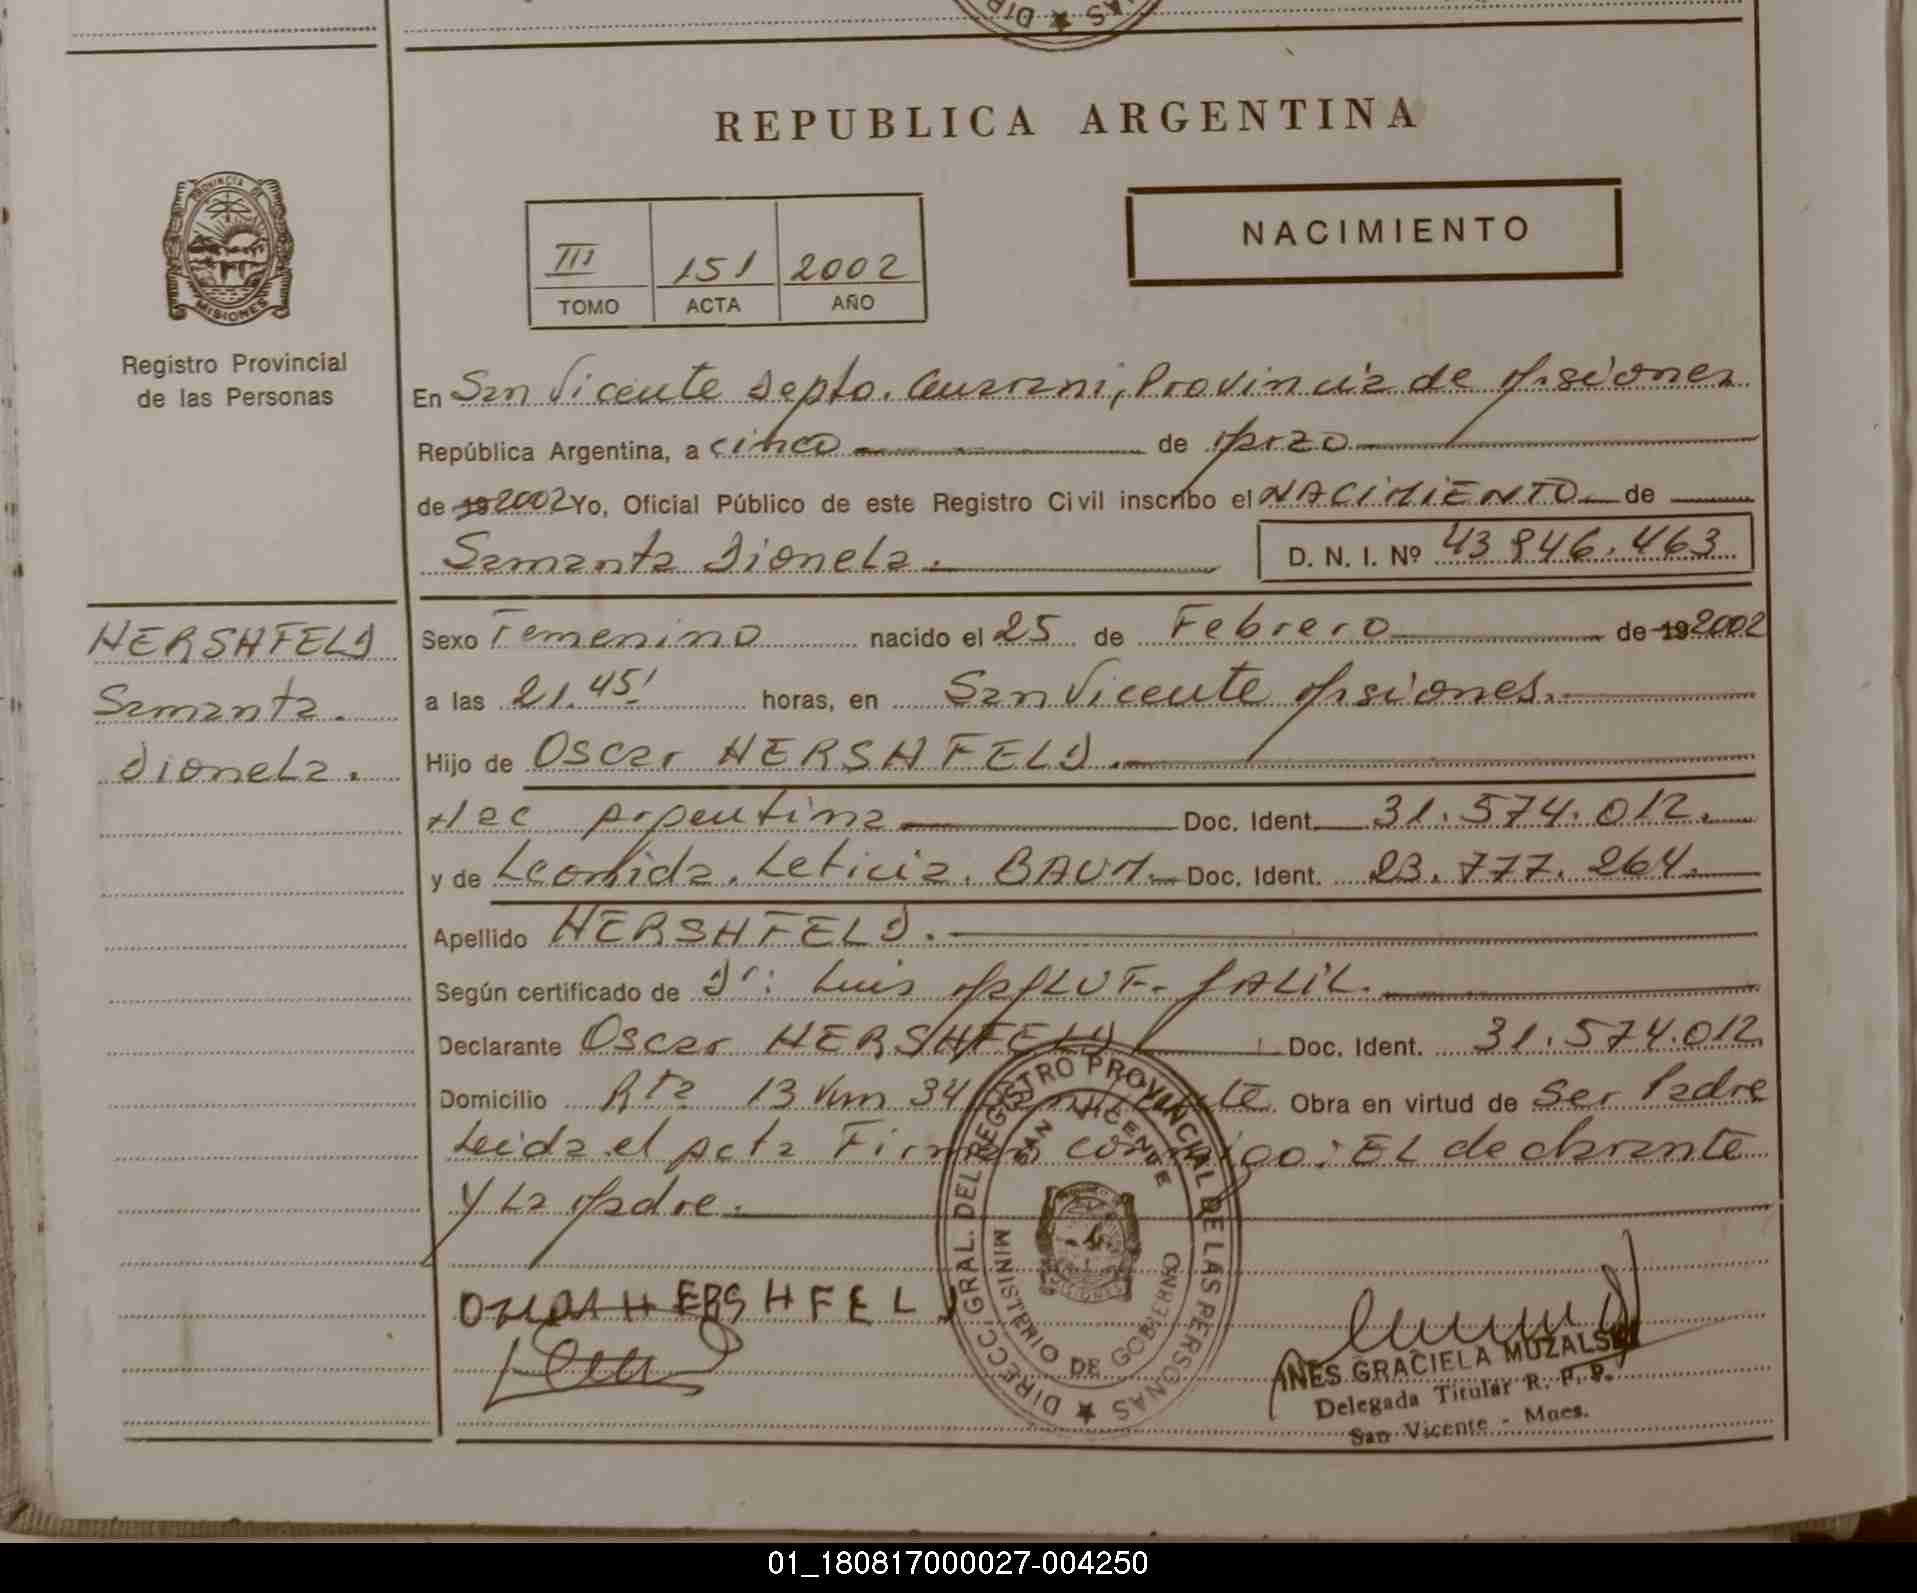 REPUBLICA ARGENTINA
PROVINCIA DE
MISIONES
Registro Provincial
de las Personas
III 151 2002
TOMO ACTA AÑO
NACIMIENTO
En San Vicente Depto. Guarani, Provincia de Misiones
República Argentina, a cinco de Marzo
de 19 2002 Yo, Oficial Público de este Registro Civil inscribo el NACIMIENTO de
Samanta Dionela.
D. N. I. Nº 43 946.463
HERSHFELD
Samanta.
Dionela.
Sexo Femenino nacido el 25 de Febrero de 19 2002
a las 21.45' horas, en San Vicente Misiones.
Hijo de Oscar HERSHFELD.
Nac Argentina Doc. Ident. 31.574.012.
y de Leonida. Leticia. BAUM. Doc. Ident. 23.777.264.
Apellido HERSHFELD.
Según certificado de Dr: Luis GALIL.
Declarante Oscar HERSHFELD Doc. Ident. 31.574.012
Domicilio Rta 13 Km 34 Obra en virtud de Ser Padre
Leida el acta Firman conmigo: EL declarante
y La Madre.
HERSHFELD
DIRECC. GRAL. DEL REGISTRO PROVINCIAL DE LAS PERSONAS
SAN VICENTE
MINISTERIO DE GOBIERNO
INES GRACIELA MUZALSKI
Delegada Titular R. P. P.
San Vicente - Mnes.
01_180817000027-004250